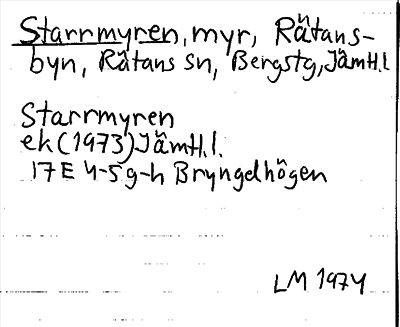 Starrmyren, myr, Rätans-
byn, Rätans sn, Bergstg, Jämtl.l
Starrmyren
ek (1973) Jämtl.l.
17E 4-5 g-h Bryngelhögen
LM 1974